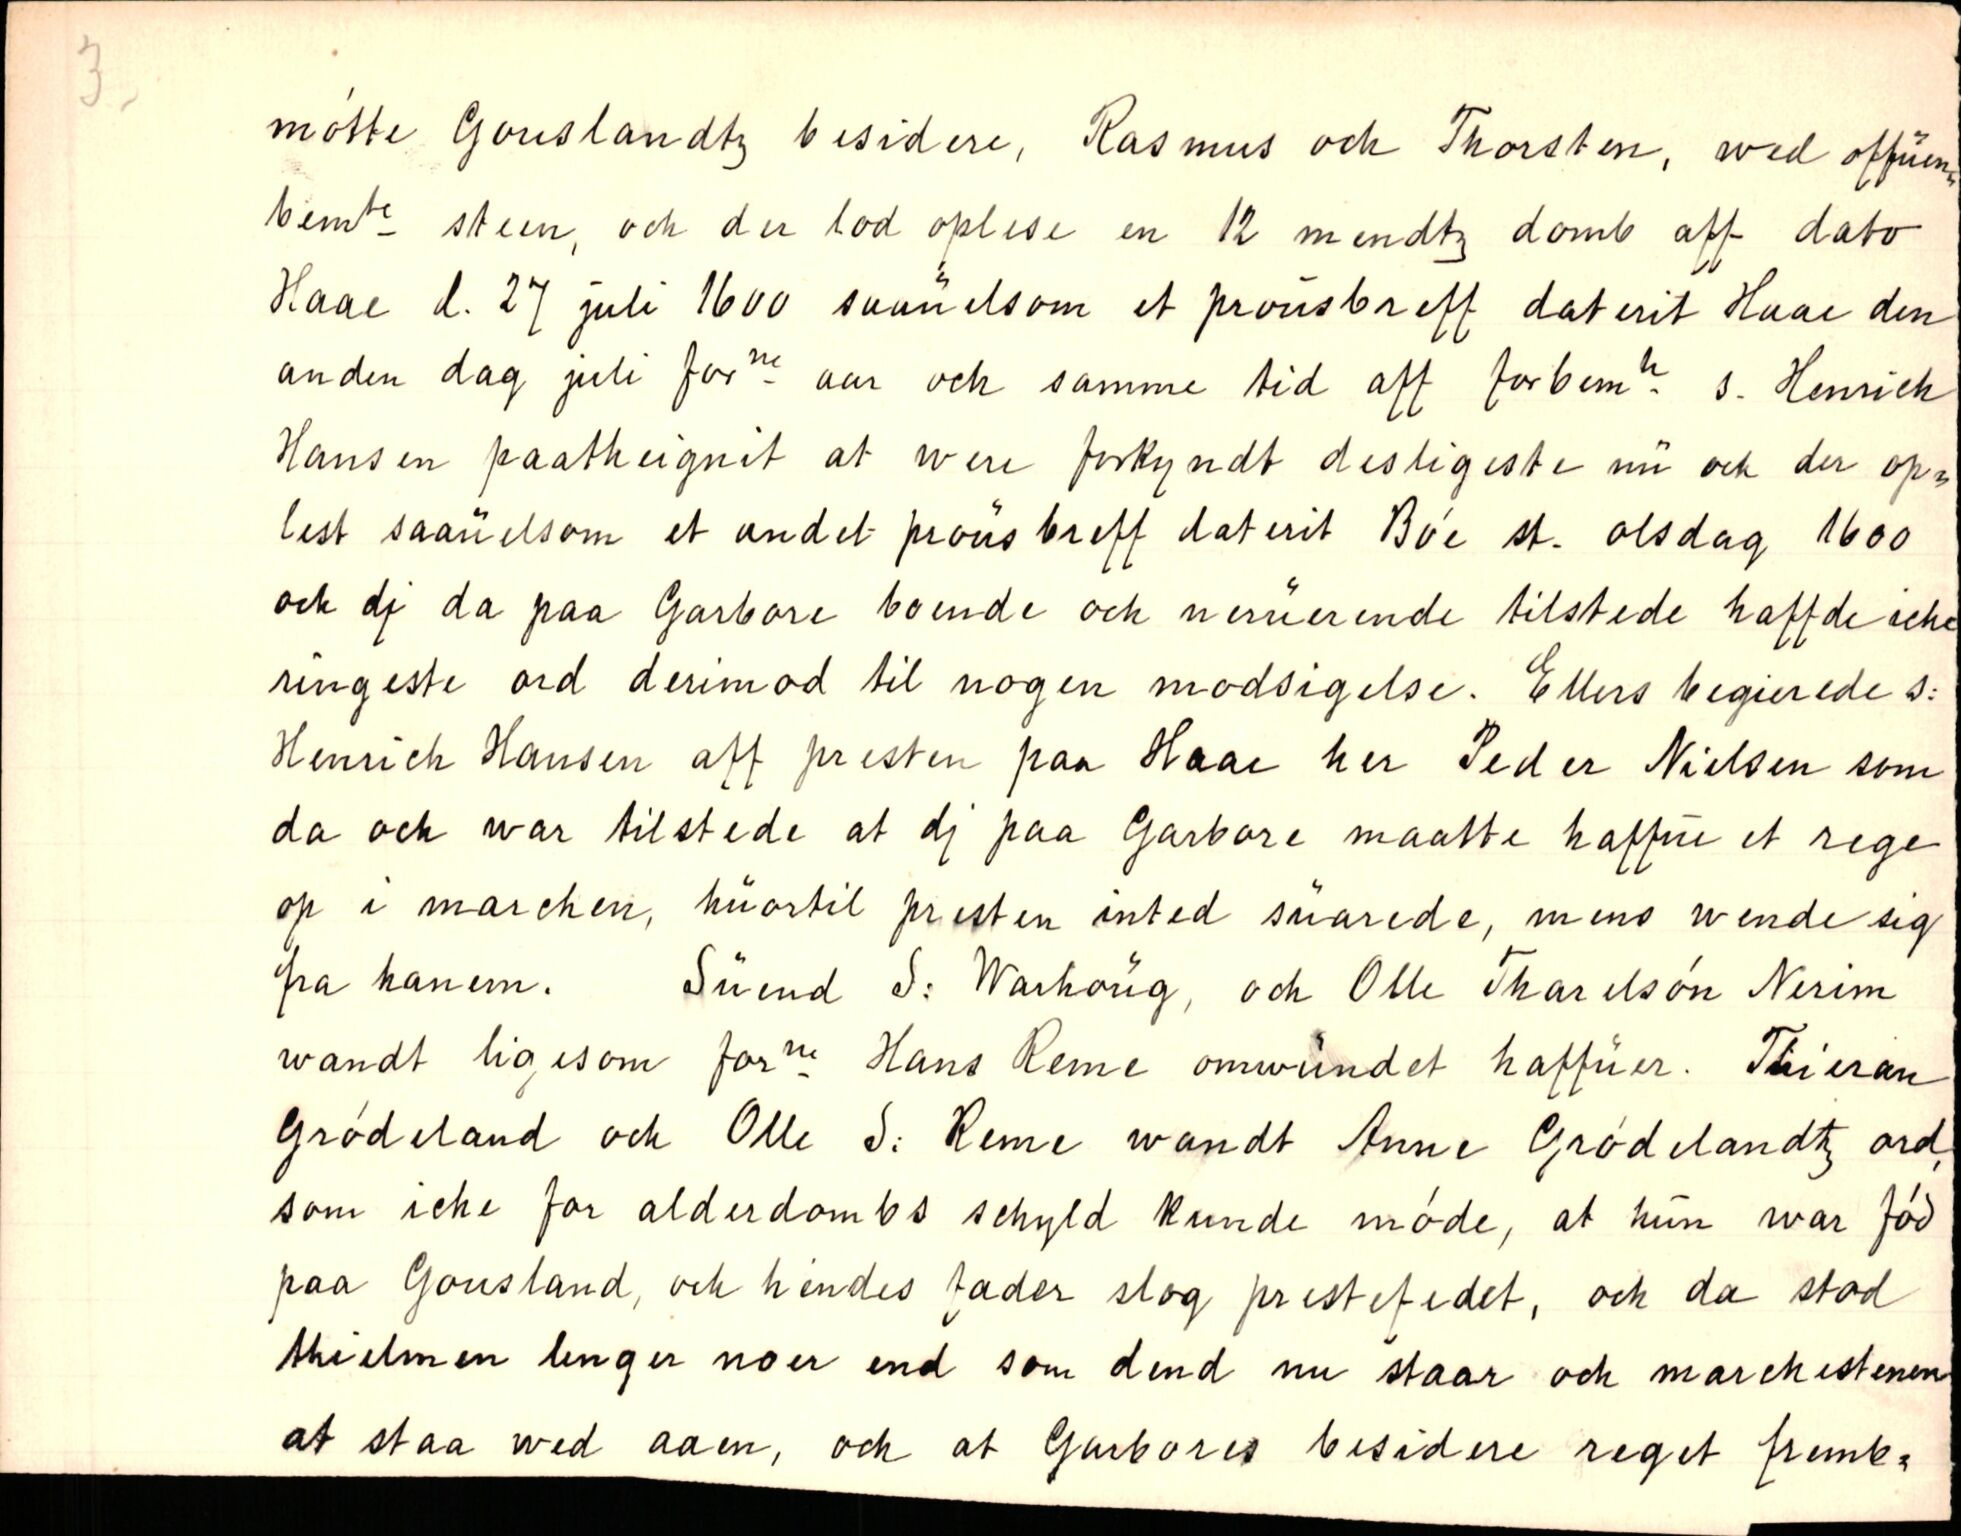 3.
mótte Gouslandtz besidere, Rasmus och Thorsten, wed offüen„
bemte steen, och der lod oplese en 12 mendtz domb aff dato
Haae d. 27 juli 1600 saaüelsom et proüsbreff daterit Haae den
anden dag juli forne aar och samme tid aff forbemte s. Henrich
Hansen paatheignit at were forkyndt desligeste nü och der op„
lest saaüelsom et andet proüsbreff daterit Bóe st. olsdag 1600
och dj da paa Garbore boende och nerüerende tilstede haffde iche
ringeste ord derimod til nogen modsigelse. Ellers begierede s:
Henrich Hansen aff presten paa Haae her Peder Nielsen som
da och war tilstede at dj paa Garbore maatte haffüe et rege
op i marchen, hüortil presten inted süarede, mens wende sig
fra hanem. Süend S: Warhoüg, och Olle Tharelsón Nerim
wandt ligesom forne Hans Reme omwündet haffüer. Thieran
Gródeland och Olle S: Reme wandt Anne Gródelandtz ord,
som iche for alderdombs schyld kunde móde, at hün war fód
paa Gousland, och hendes fader slog prestefedet, och da stod
thielmen lenger noer end som dend nu staar och marchestenen
at staa wed aaen, och at Garbores besidere reget fremb„